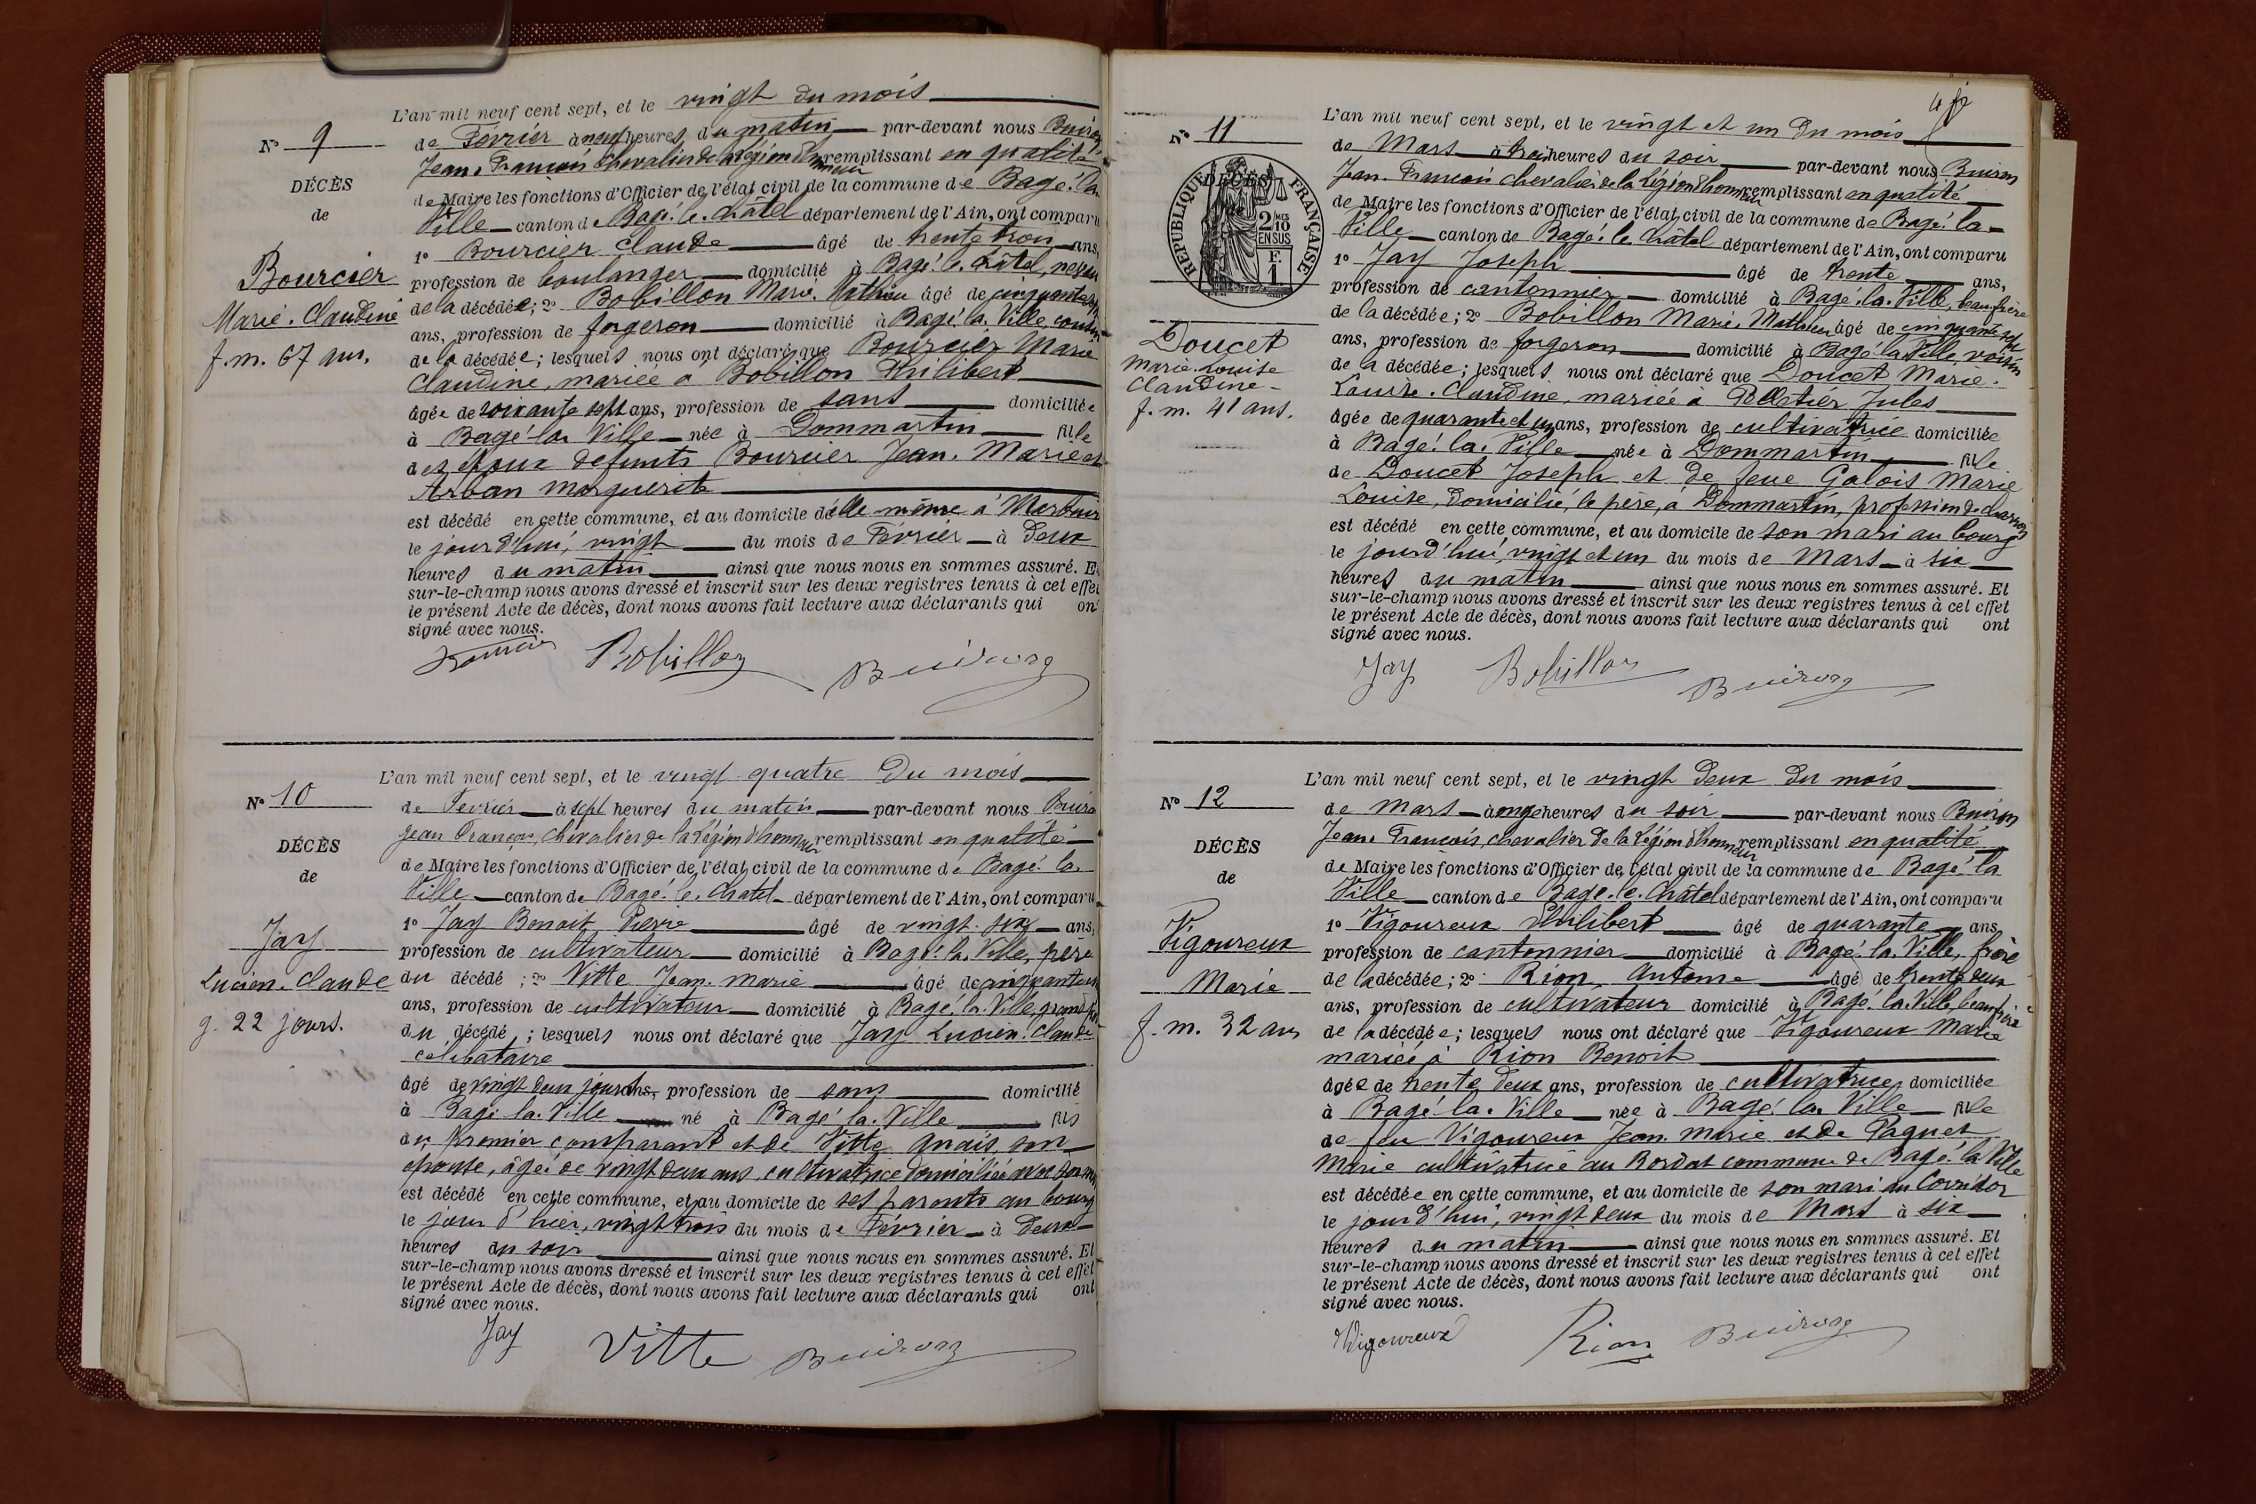 L'an mil neuf cent sept, et le vingt du mois
de Février à neuf heures du matin par-devant nous Buiron
Jean-François chevalier de la légion d'honneur remplissant en qualité
de Maire les fonctions d'Officier de l'état civil de la commune de Bagé-la-
Ville canton de Bagé-le-Châtel département de l'Ain, ont comparu
1° Bourcier Claude âgé de trente trois ans,
profession de boulanger domicilié à Bagé-le-Châtel, neveu
de la décédée; 2° Bobillon Marie-Mathieu âgé de
ans, profession de forgeron domicilié à Bagé-la-Ville, cousin
de la décédée; lesquels nous ont déclaré que Bourcier Marie
Claudine, mariée à Bobillon Philibert
âgée de soixante sept ans, profession de sans domiciliée
à Bagé-la-Ville née à Dommartin fille
des époux défunts Bourcier Jean-Marie et
Arban Marguerite
est décédé en cette commune, et au domicile d'elle même à
le jourd'hui, vingt du mois de Février à deux
heures du matin ainsi que nous nous en sommes assuré. Et
sur-le-champ nous avons dressé et inscrit sur les deux registres tenus à cet effet
le présent Acte de décès, dont nous avons fait lecture aux déclarants qui ont
signé avec nous.
Bourcier Bobillon Buiron
N° 9
DÉCÈS
de
Bourcier
Marie-Claudine
f. m. 67 ans.
L'an mil neuf cent sept, et le vingt quatre du mois
de Février à sept heures du matin par-devant nous Buiron
Jean François, chevalier de la légion d'honneur remplissant en qualité
de Maire les fonctions d'Officier de l'état civil de la commune de Bagé-la-
Ville canton de Bagé-le-Chatel département de l'Ain, ont comparu
1° Jay Benoit Pierre âgé de vingt six ans,
profession de cultivateur domicilié à Bagé-la-Ville, père
du décédé; 2° Vitte Jean-Marie âgé de
ans, profession de cultivateur domicilié à Bagé-la-Ville, grand-père
du décédé; lesquels nous ont déclaré que Jay Lucien-Claude
célibataire
âgé de vingt deux jours ans, profession de sans domicilié
à Bagé-la-Ville né à Bagé-la-Ville fils
du premier comparant et de Vitte Anais, son
épouse, âgée de vingt deux ans, cultivatrice domiciliée avec son mari
est décédé en cette commune, et au domicile de ses parents au bourg
le jour d'hier, vingt trois du mois de Février à deux
heures du soir ainsi que nous nous en sommes assuré. Et
sur-le-champ nous avons dressé et inscrit sur les deux registres tenus à cet effet
le présent Acte de décès, dont nous avons fait lecture aux déclarants qui ont
signé avec nous.
Jay Vitte Buiron
N° 10
DÉCÈS
de
Jay
Lucien-Claude
g. 22 jours.
L'an mil neuf cent sept, et le vingt et un du mois
de Mars à trois heures du soir par-devant nous Buiron
Jean-François chevalier de la légion d'honneur remplissant en qualité
de Maire les fonctions d'Officier de l'état civil de la commune de Bagé-la-
Ville canton de Bagé-le-Châtel département de l'Ain, ont comparu
1° Jay Joseph âgé de trente ans,
profession de cantonnier domicilié à Bagé-la-Ville, beau-frère
de la décédée; 2° Bobillon Marie-Mathieu âgé de cinquante sept
ans, profession de forgeron domicilié à Bagé-la-Ville, voisin
de la décédée; lesquels nous ont déclaré que Doucet Marie-
Louise-Claudine, mariée à Pelletier Jules
âgée de quarante et un ans, profession de cultivatrice domiciliée
à Bagé-la-Ville née à Dommartin fille
de Doucet Joseph et de feue Galois Marie
Louise, domicilié, le père, à Dommartin, profession de charron
est décédé en cette commune, et au domicile de son mari au bourg
le jourd'hui, vingt et un du mois de Mars à six
heures du matin ainsi que nous nous en sommes assuré. Et
sur-le-champ nous avons dressé et inscrit sur les deux registres tenus à cet effet
le présent Acte de décès, dont nous avons fait lecture aux déclarants qui ont
signé avec nous.
Jay Bobillon Buiron
N° 11
DÉCÈS
RÉPUBLIQUE FRANÇAISE
2/10
EN SUS
F.
1
Doucet
Marie-Louise
Claudine
f. m. 41 ans.
L'an mil neuf cent sept, et le vingt deux du mois
de Mars à onze heures du soir par-devant nous Buiron
Jean-François, chevalier de la légion d'honneur remplissant en qualité
de Maire les fonctions d'Officier de l'état civil de la commune de Bagé-la
Ville canton de Bagé-le-Châtel département de l'Ain, ont comparu
1° Vigoureux Philibert âgé de quarante ans,
profession de cantonnier domicilié à Bagé-la-Ville, frère
de la décédée; 2° Rion Antoine âgé de trente deux
ans, profession de cultivateur domicilié à Bagé-la-Ville, beau-frère
de la décédée; lesquels nous ont déclaré que Vigoureux Marie
mariée à Rion Benoit
âgée de trente deux ans, profession de cultivatrice, domiciliée
à Bagé-la-Ville née à Bagé-la-Ville fille
de feu Vigoureux Jean-Marie et de Paquet
Marie cultivatrice au Bordat commune de Bagé-la-Ville
est décédée en cette commune, et au domicile de son mari au Corridor
le jourd'hui, vingt deux du mois de Mars à six
heures du matin ainsi que nous nous en sommes assuré. Et
sur-le-champ nous avons dressé et inscrit sur les deux registres tenus à cet effet
le présent Acte de décès, dont nous avons fait lecture aux déclarants qui ont
signé avec nous.
Vigoureux Rion Buiron
N° 12
DÉCÈS
de
Vigoureux
Marie
f. m. 32 ans